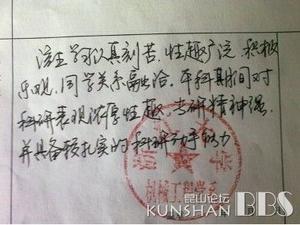 该生学习认真刻苦,性趣广泛,积极
乐观,同学关系融洽.本科期间对
科研表现浓厚性趣,专研精神强,
并具备较扎实的科研动手能力
机械工程学
昆山论坛
KUNSHAN BBS